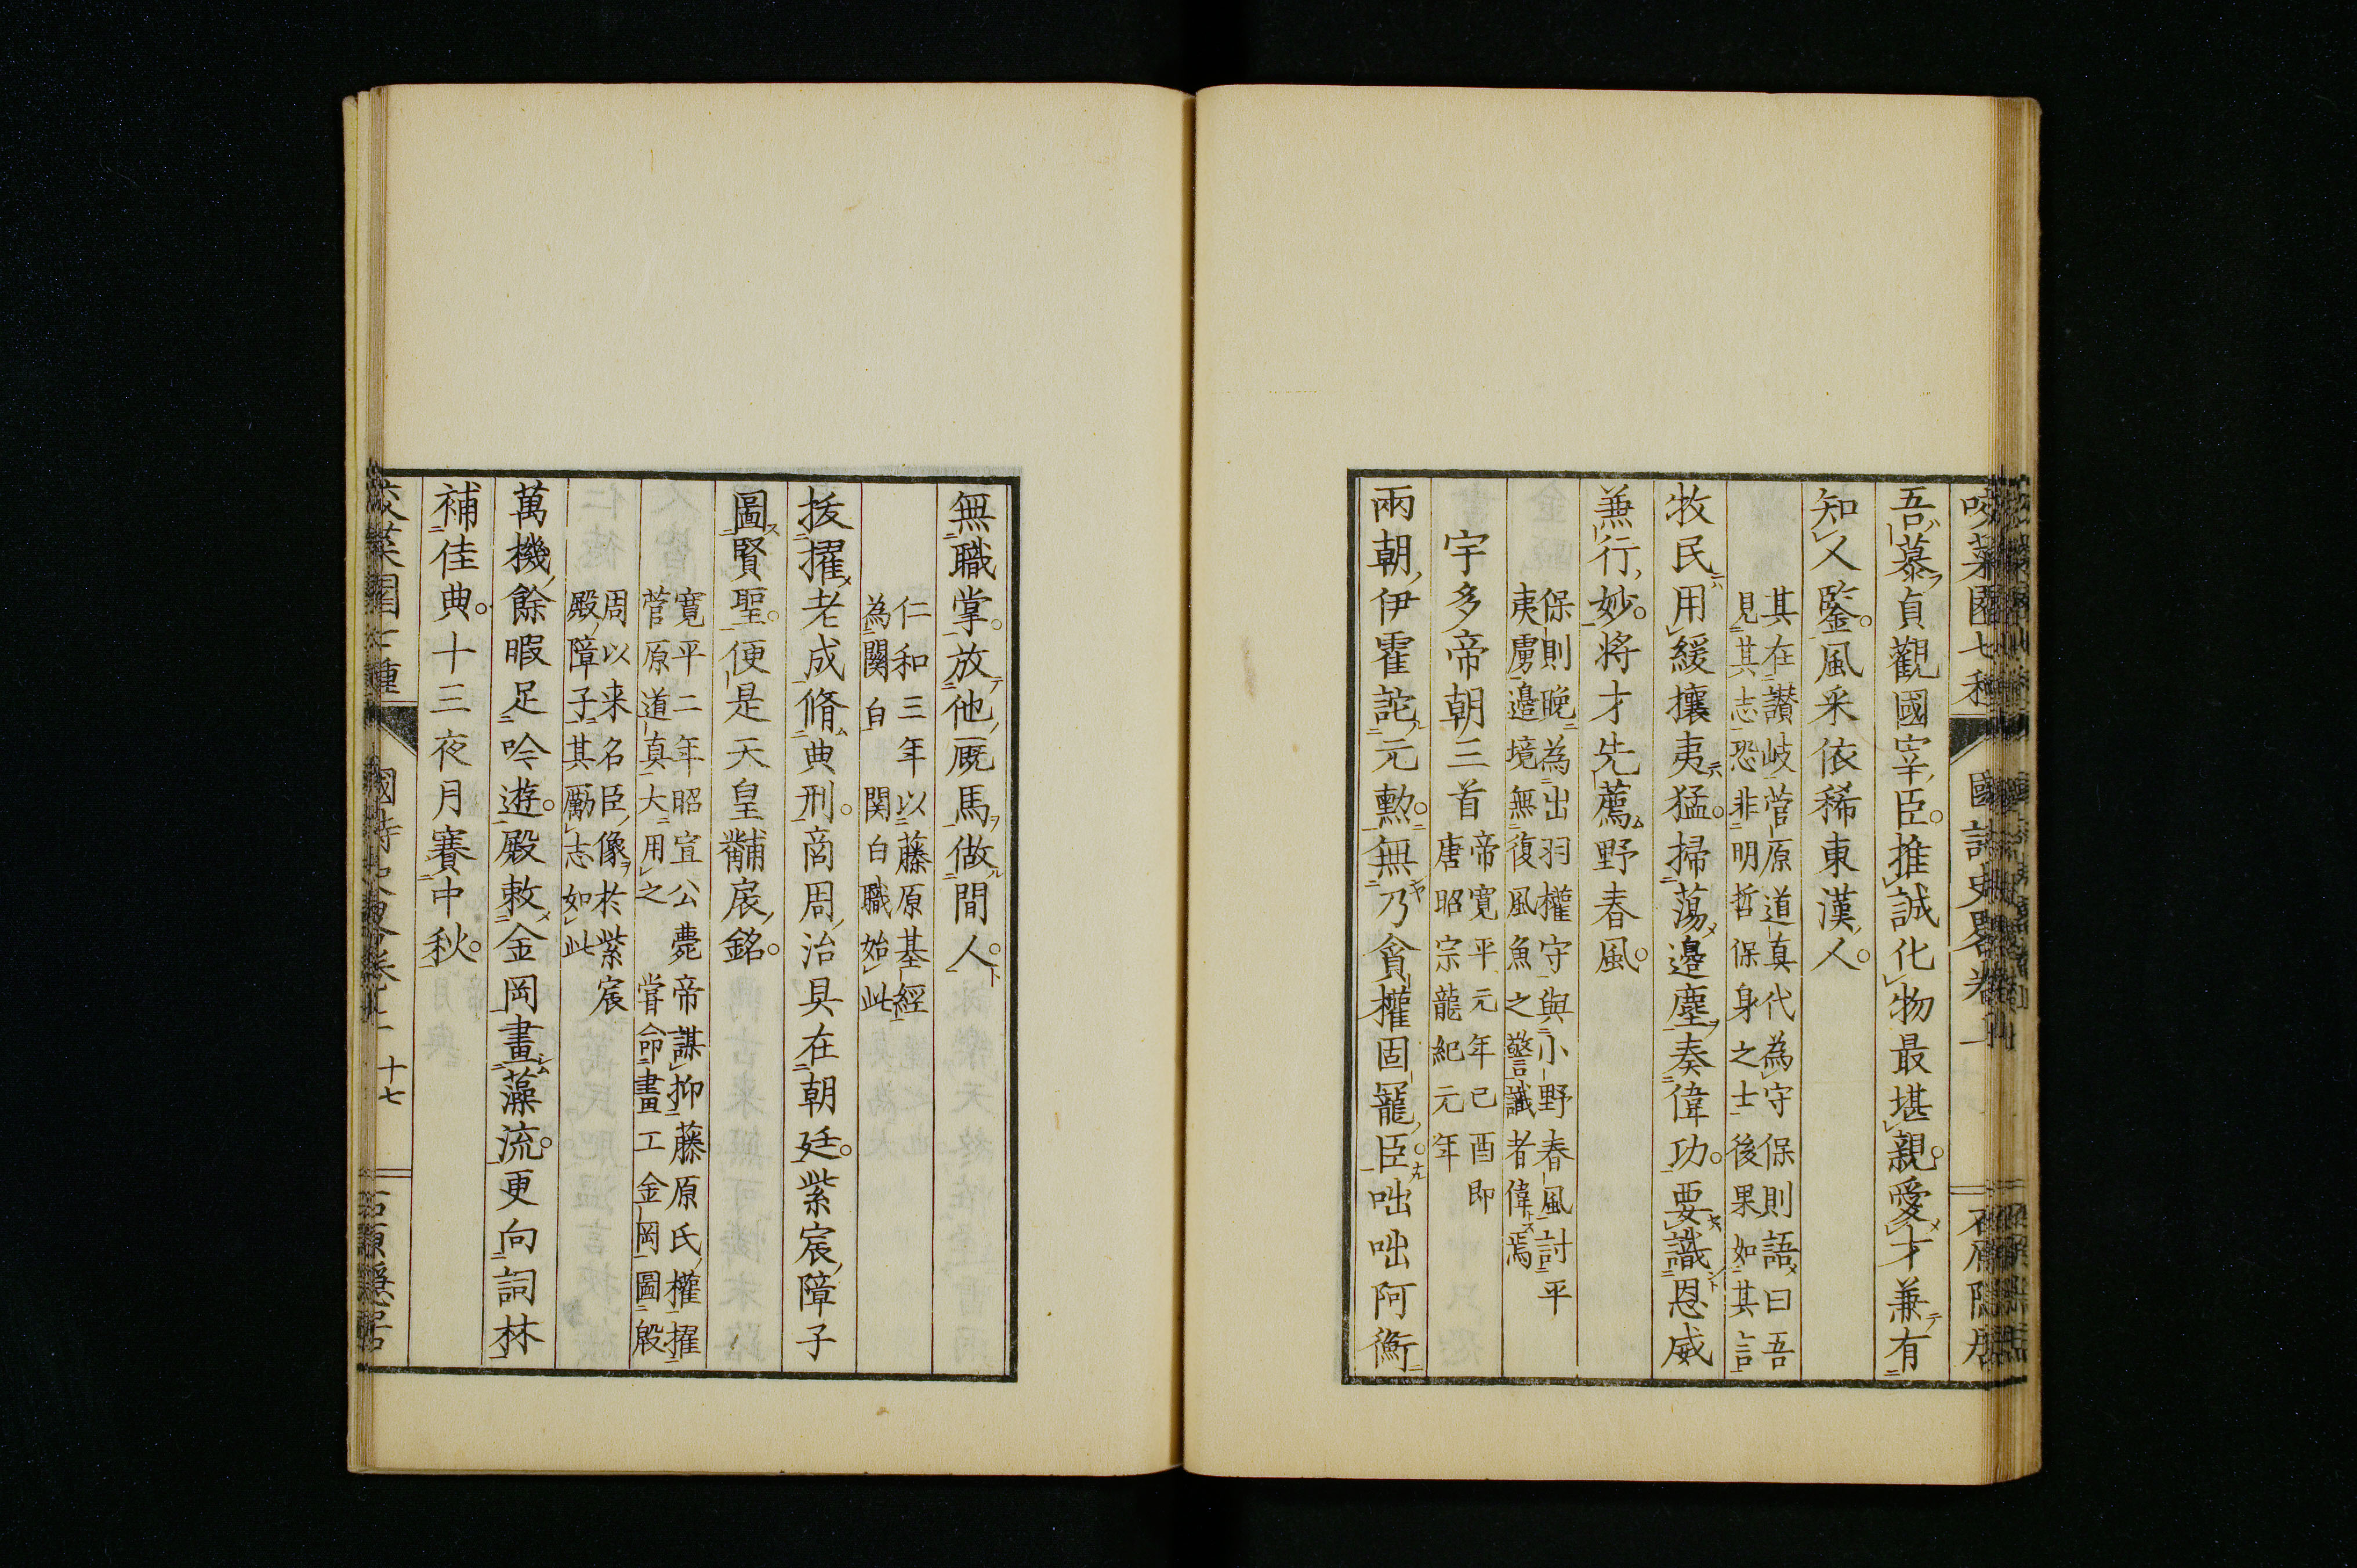 吾慕貞觀國宰臣。推誠化物最堪親。愛才兼有
知人鑒。風采依稀東漢人。
其在讃岐菅原道真代為守保則語曰吾
見其志恐非明哲保身之士後果如其言
牧民用緩攘夷猛。掃蕩邊塵奏偉功。要識恩威
兼行妙。将才先薦野春風。
保則晩為出羽權守與小野春風討平
夷虜邊境無復風魚之警識者偉焉
宇多帝朝三首
帝寛平元年己酉即
唐昭宗龍紀元年
兩朝伊霍詑元勲。無乃貪權固寵臣。咄咄阿衡
無職掌。放他厩馬做間人。
仁和三年以藤原基經
為関白関白職始此
拔擢老成脩典刑。商周治具在朝廷。紫宸障子
圖賢聖。便是天皇黼扆銘。
寛平二年昭宣公薨帝謀抑藤原氏權擢
菅原道真大用之嘗命畫工金岡圖殷
周以来名臣像於紫宸
殿障子其勵志如此
萬機餘暇足吟遊。殿敕金岡畫藻流。更向詞林
補佳典。十三夜月賽中秋。
十七